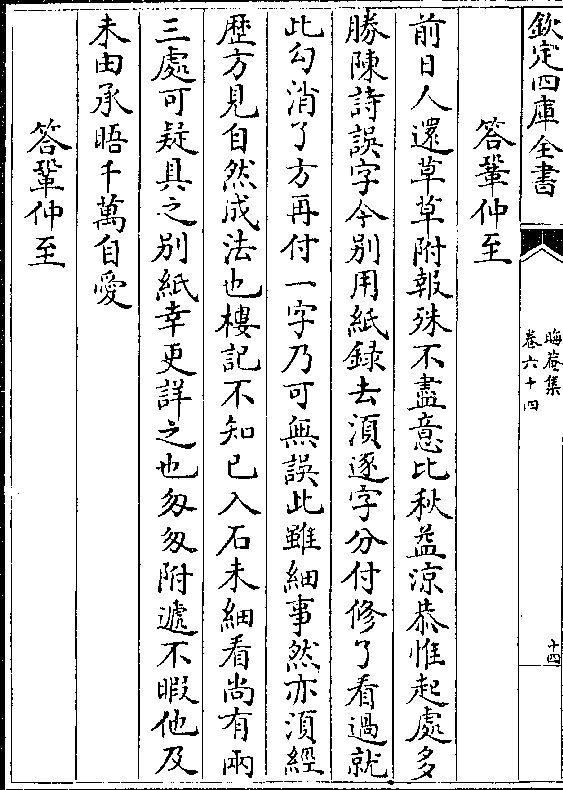 欽定四庫全書
晦菴集
卷六十四
十四
答鞏仲至
前日人還草草附報殊不盡意比秋益涼恭惟起處多
勝陳詩誤字今別用紙録去湏逐字分付修了看過就
此勾消了方再付一字乃可無誤此雖細事然亦湏經
歴方見自然成法也樓記不知已入石未細看尚有兩
三處可疑具之别紙幸更詳之也匆匆附遞不暇他及
未由承晤千萬自愛
答鞏仲至